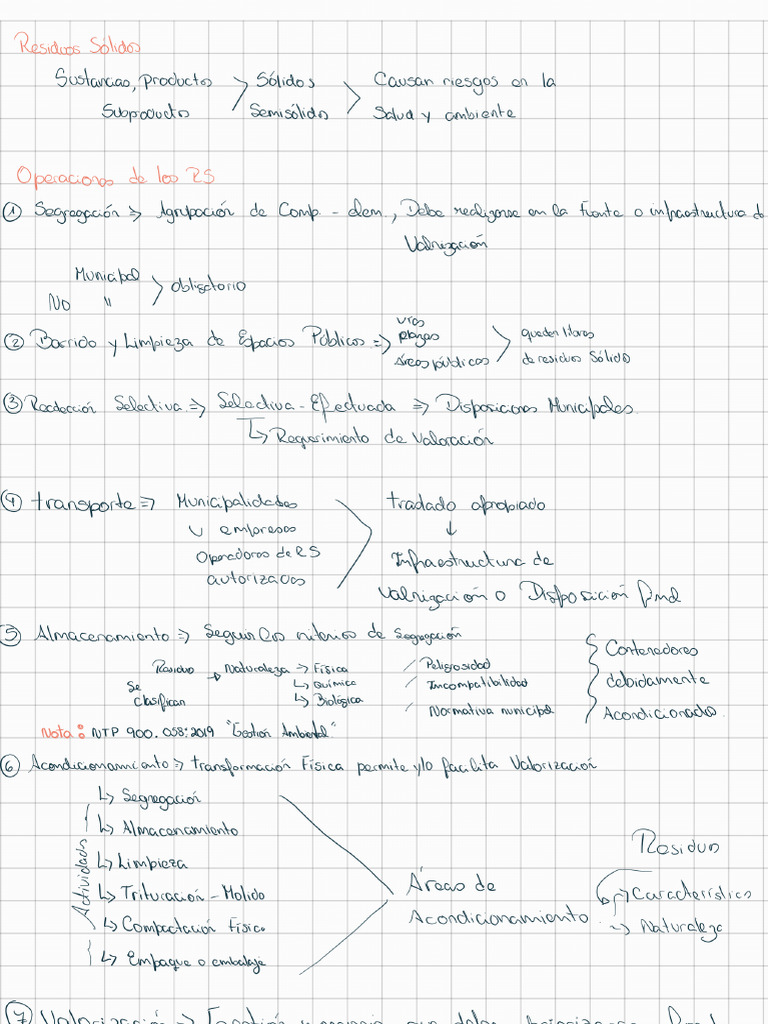 Residuos Sólidos
Sustancias, Productos > Sólidos > Causan riesgos en la
Subproductos Semisólidos Salud y ambiente
Operaciones de los RS
① Segregación => Agrupación de Comp - elem., Debe realizarse en la fuente o infraestructura d
Valorización
Municipal > obligatorio
No "
② Barrido y Limpieza de Espacios Públicos =>
vías
plazas
Áreas públicos
queden libres
de residuos Sólido
③ Recolección Selectiva => Selectiva - Efectuada => Disposiciones Municipales.
↳ Requerimiento de Valoración
④ transporte => Municipalidades
u empresas
Operadoras de RS
autorizadas
traslado apropiado
↓
Infraestructura de
Valorización o Disposición final
⑤ Almacenamiento => Seguir los criterios de Segregación
Residuo → Naturaleza → Física
Se ↳ Química
clasifican ↳ Biológica
/ Peligrosidad
/ Incompatibilidad
/ Normativa municipal
Contenedores
debidamente
Acondicionado.
Nota: NTP 900.058:2019 "Gestión Ambiental"
⑥ Acondicionamiento => transformación Física permite y/o facilita Valorización
Actividades
↳ Segregación
↳ Almacenamiento
↳ Limpieza
↳ Trituración - Molido
↳ Compactación Física
↳ Empaque o embalaje
Áreas de
Acondicionamiento
Residuo
→ Característica
→ Naturaleza
⑦ Valorización =>